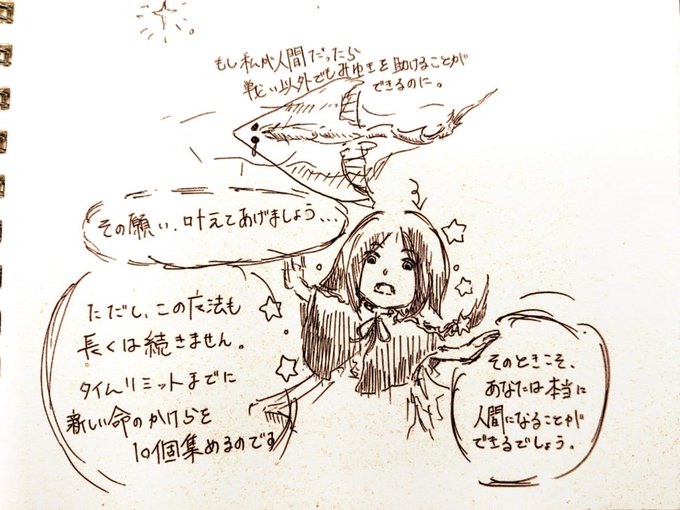 もし私が人間だったら
戦い以外でもみゆきを助けることが
できるのに。
その願い、叶えてあげましょう...
ただし、この魔法も
長くは続きません。
タイムリミットまでに
新しい命のかけらを
10個集めるのです
そのときこそ、
あなたは本当に
人間になることが
できるでしょう。